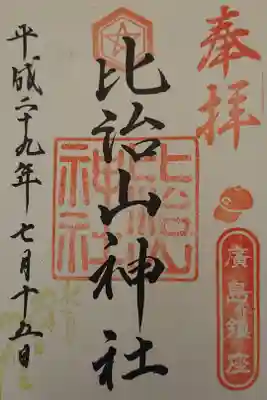 奉拝
廣島鎮座
比治山神社
比治山
神社
平成二十九年七月十五日